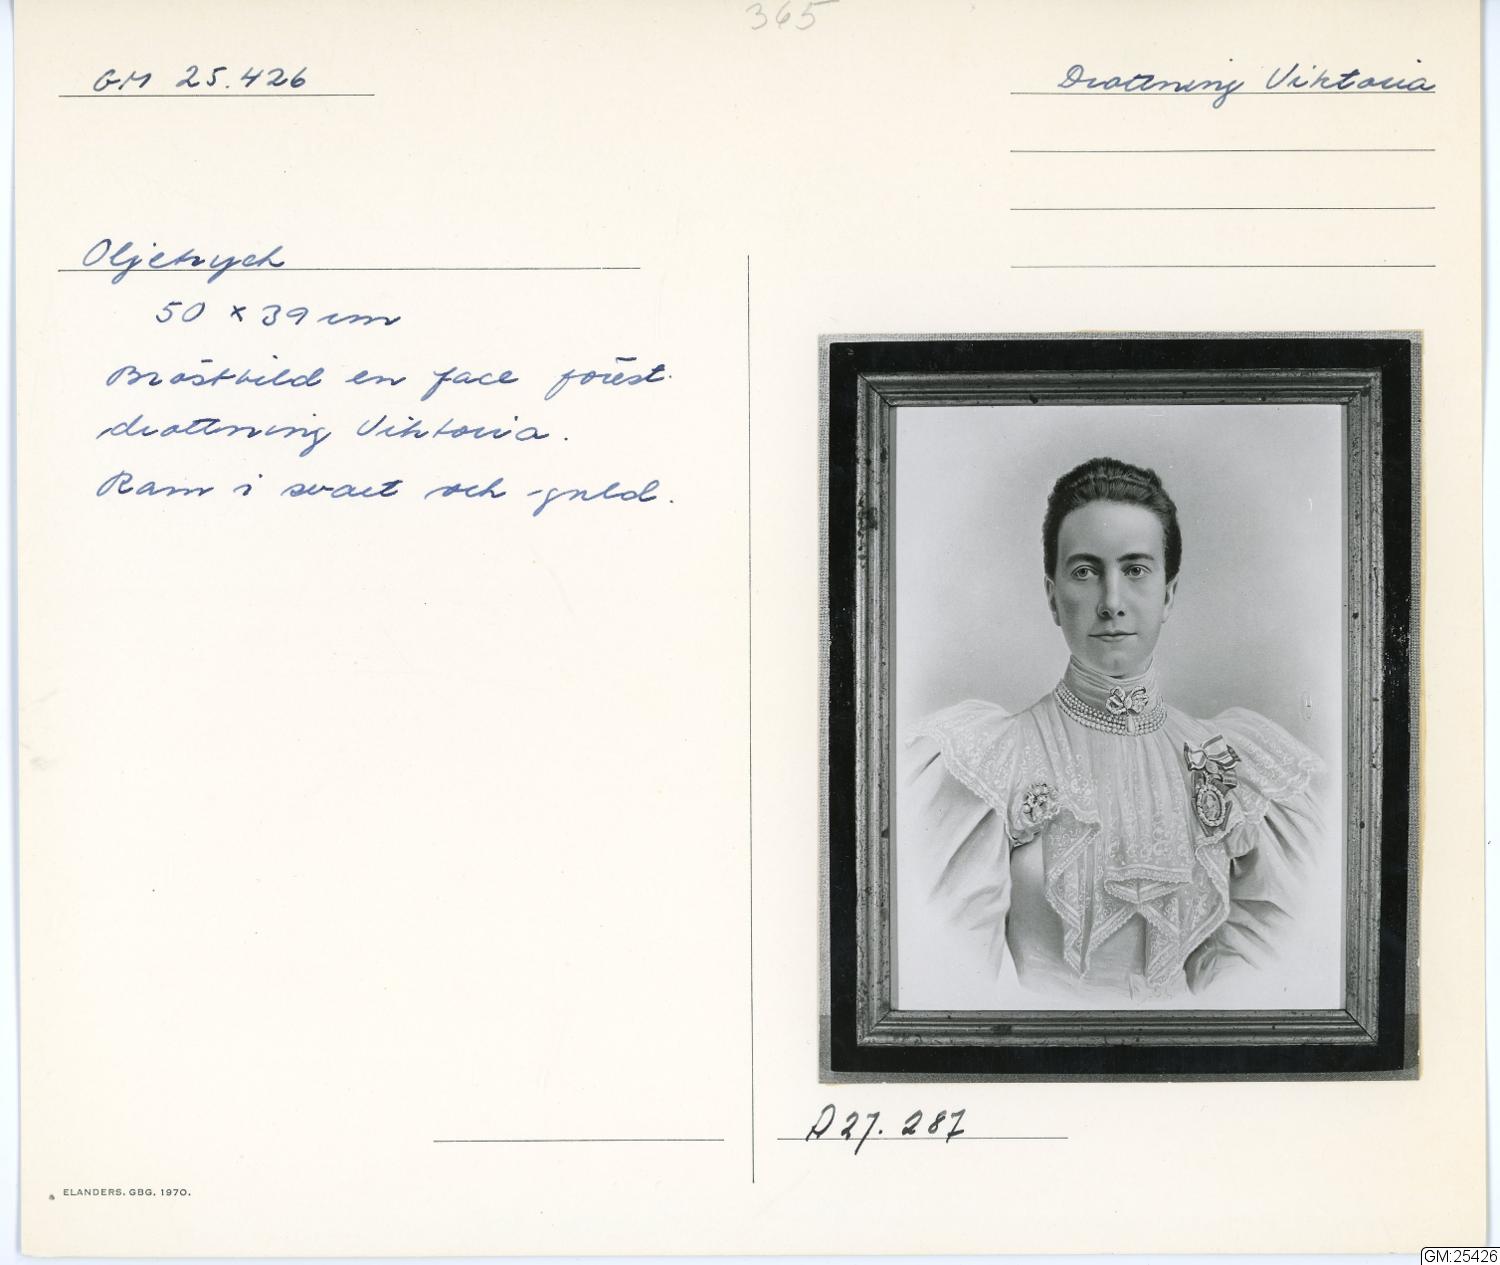 365
GM 25.426
Drottning Viktoria
Oljetryck
50 x 39 cm
Bröstbild en face förest.
drottning Viktoria.
Ram i svart och guld.
A 27. 287
ELANDERS. GBG. 1970.
GM:25426